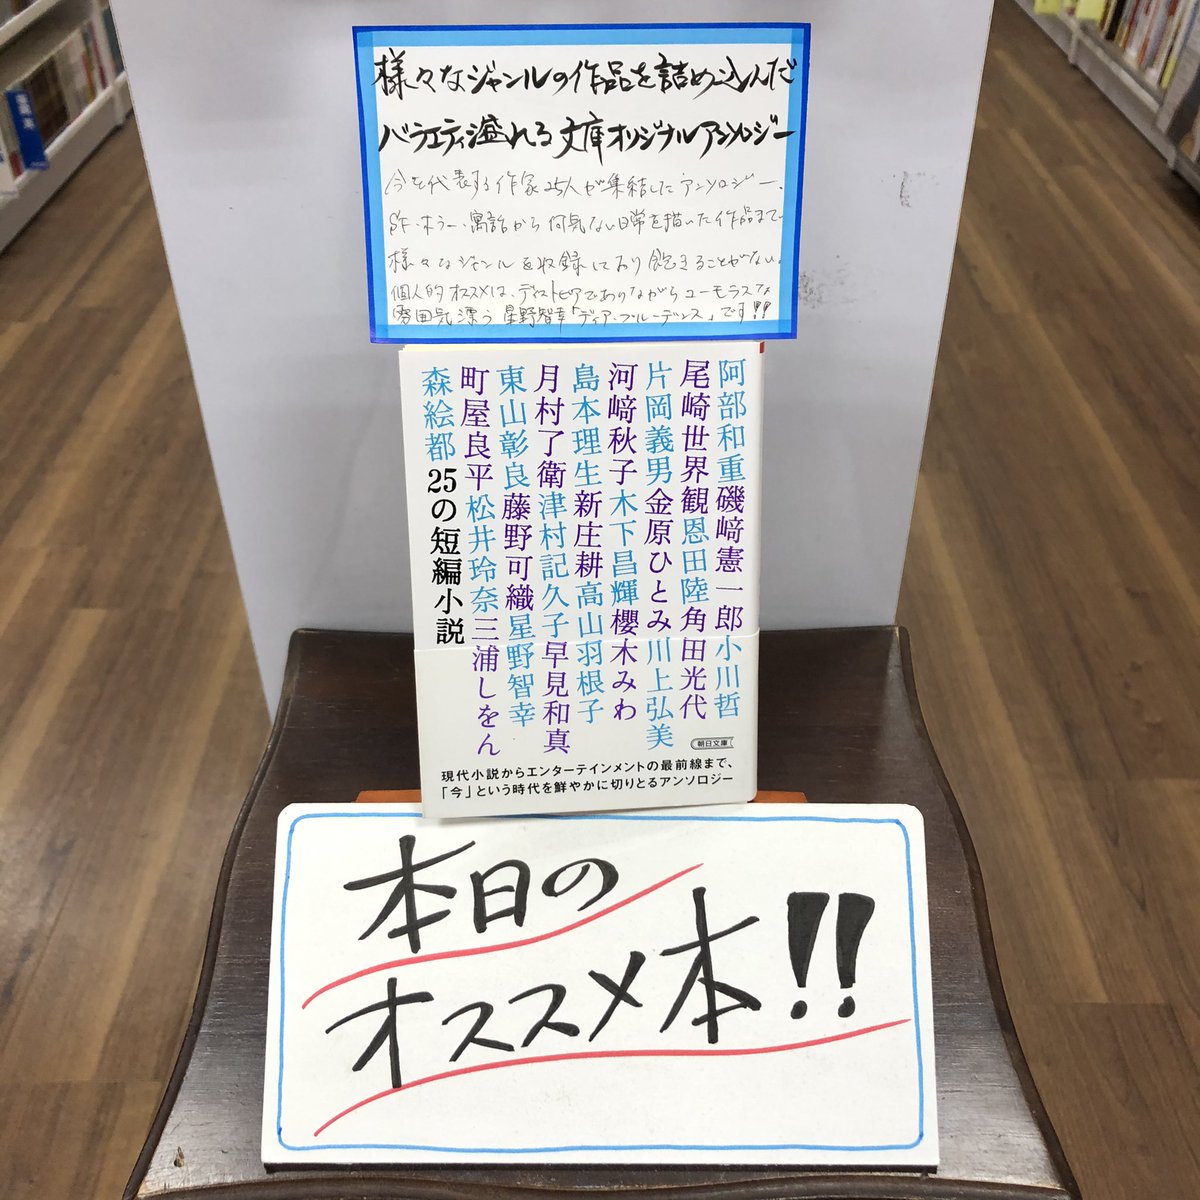 様々なジャンルの作品を詰め込んだ
バラエティ溢れる文庫オリジナルアンソロジー
今を代表する作家25人が集結したアンソロジー。
SF・ホラー・寓話から何気ない日常を描いた作品まで
様々なジャンルを収録しており飽きることがない。
個人的オススメは、ディストピアでありながらユーモラスな
雰囲気漂う星野智幸「ディア・プルーデンス」です!!
阿部和重磯﨑憲一郎小川哲
尾崎世界観恩田陸角田光代
片岡義男金原ひとみ川上弘美
河﨑秋子木下昌輝櫻木みわ
島本理生新庄耕高山羽根子
月村了衛津村記久子早見和真
東山彰良藤野可織星野智幸
町屋良平松井玲奈三浦しをん
森絵都25の短編小説
朝日文庫
現代小説からエンターテインメントの最前線まで、
「今」という時代を鮮やかに切りとるアンソロジー
本日の
オススメ本!!